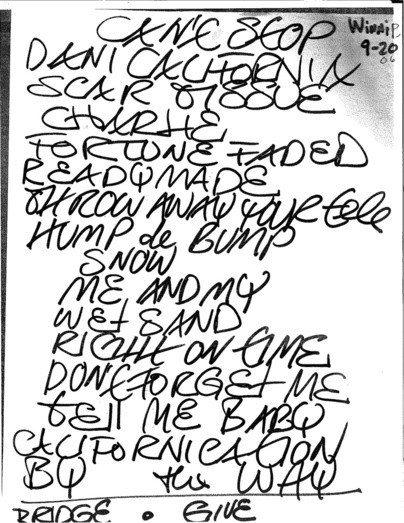 CAN'T STOP
WINNIP.
9-20
06
DANI CALIFORNIA
SCAR TISSUE
CHARLIE
FORTUNE FADED
READYMADE
THROW AWAY YOUR tELE
HUMP de BUMP
SNOW
ME AND MY
WEt SAND
RIGHT ON TIME
DON'T FORGEt ME
tELL ME BABY
CALIFORNICATION
BY the WAY
BRIDGE • GIVE